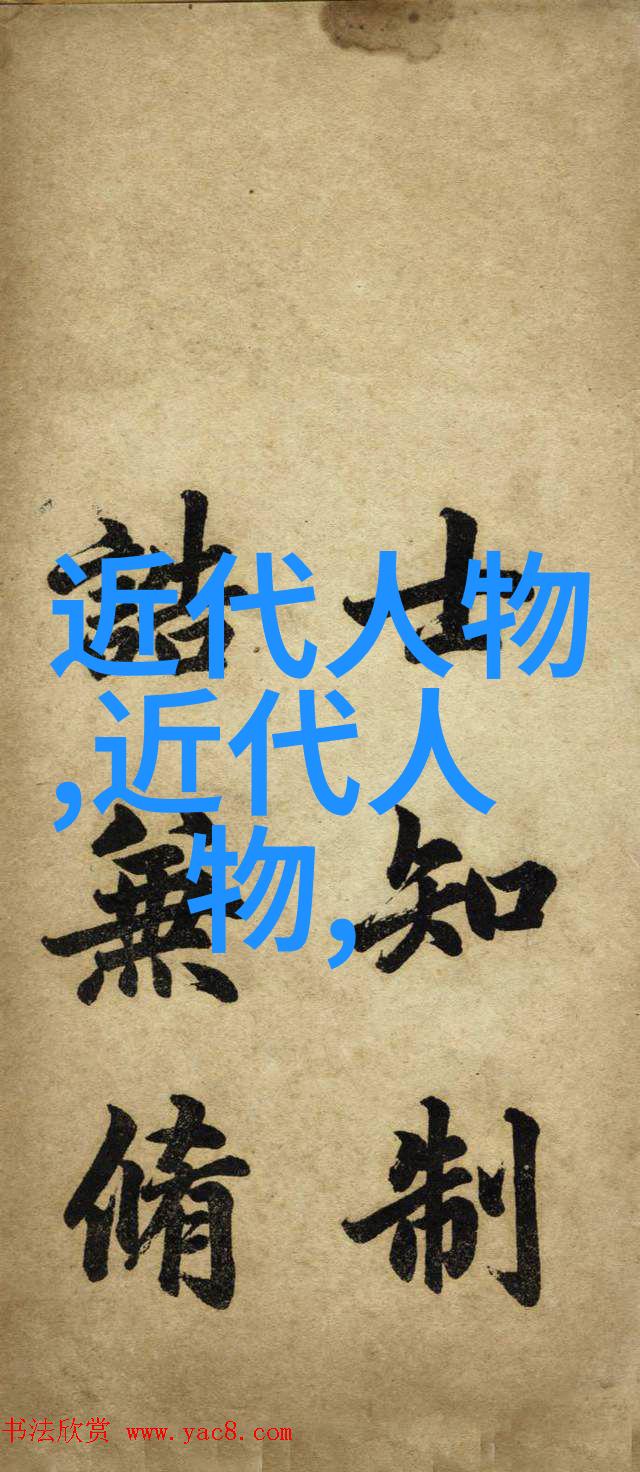 近代人物
,近代人
物,
士知制
誥兼脩
书法欣赏 www.yac8.com